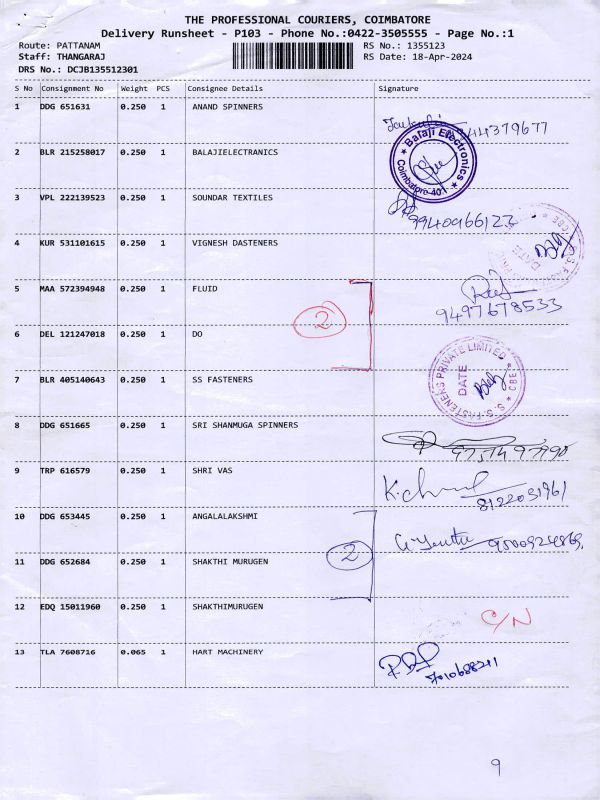 THE PROFESSIONAL COURIERS, COIMBATORE
Delivery Runsheet - P103 - Phone No.:0422-3505555 - Page No.:1
Route: PATTANAM
RS No.: 1355123
Staff: THANGARAJ
RS Date: 18-Apr-2024
DRS No.: DCJB135512301
S No Consignment No Weight PCS Consignee Details Signature
1 DDG 651631 0.250 1 ANAND SPINNERS
2 BLR 215258017 0.250 1 BALAJIELECTRANICS
★ Balaji Electronics ★ Coimbatore 40
3 VPL 222139523 0.250 1 SOUNDAR TEXTILES
9940966122
4 KUR 531101615 0.250 1 VIGNESH DASTENERS
DATE
CBE
5 MAA 572394948 0.250 1 FLUID
9497678533
2
6 DEL 121247018 0.250 1 DO
7 BLR 405140643 0.250 1 SS FASTENERS
S.S. FASTENERS PRIVATE LIMITED ★ CBE ★
DATE
8 DDG 651665 0.250 1 SRI SHANMUGA SPINNERS
9 TRP 616579 0.250 1 SHRI VAS
8122031961
10 DDG 653445 0.250 1 ANGALALAKSHMI
2
11 DDG 652684 0.250 1 SHAKTHI MURUGEN
12 EDQ 15011960 0.250 1 SHAKTHIMURUGEN
C/N
13 TLA 7608716 0.065 1 HART MACHINERY
9